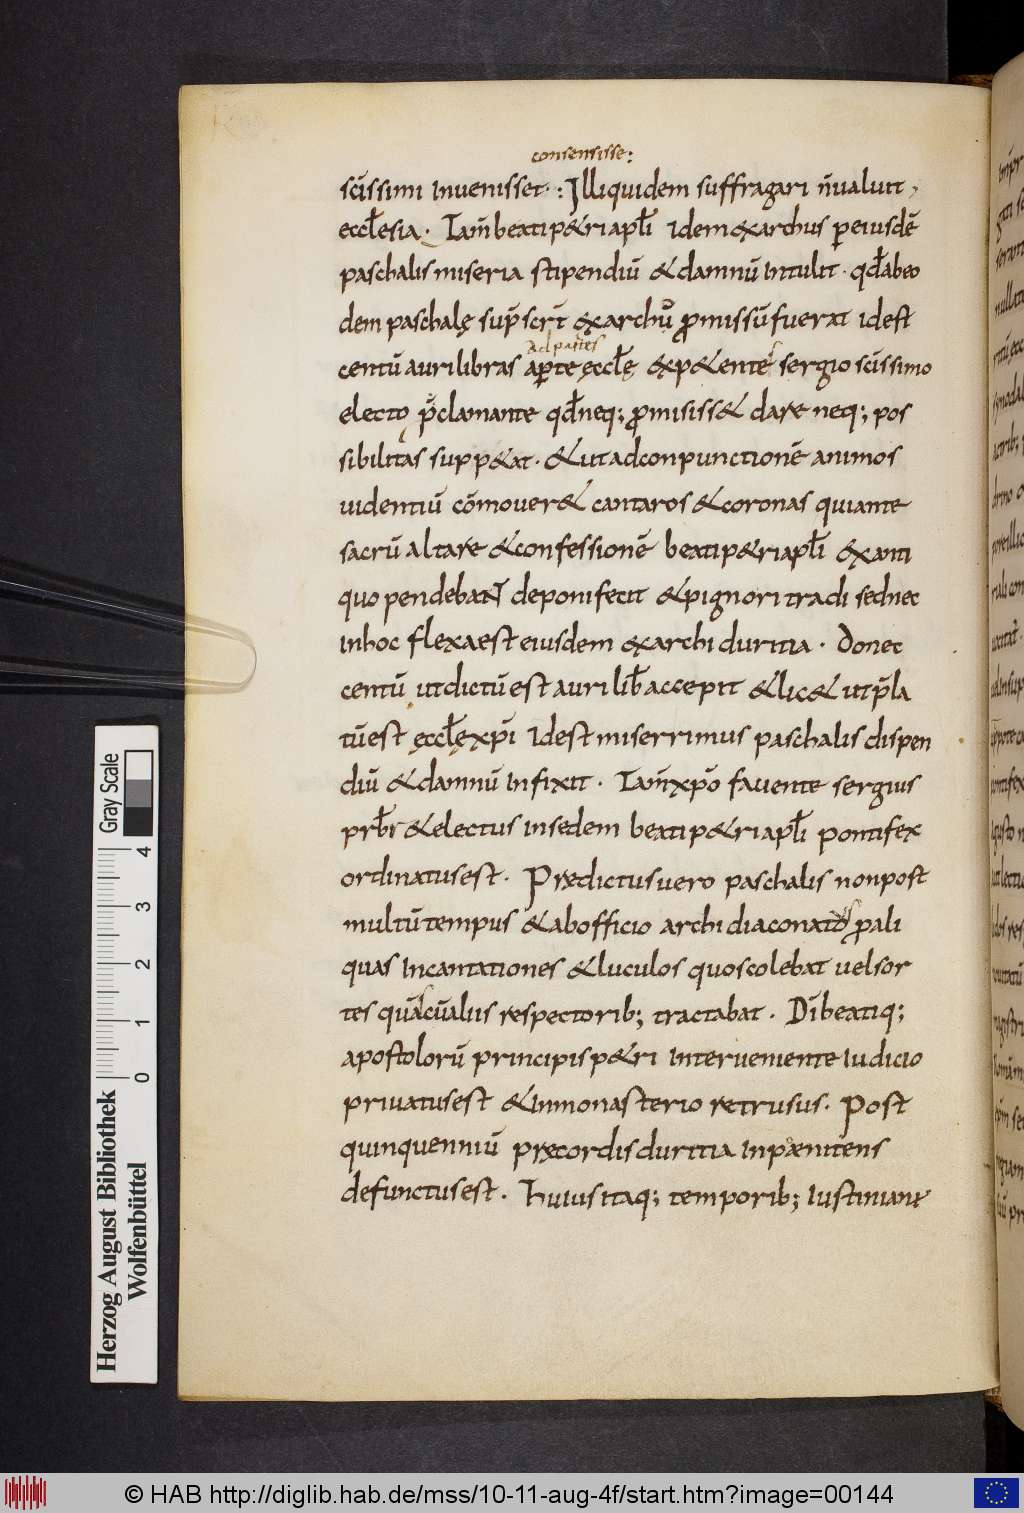 consensisse:
scı̄ssimi inuenisset·: Illi quidem suffragari n̄ualuit,
eccl̄esia· Tam̄ beati p&ri apl̄i idem exarchus p̱ eiusdē
paschalis miseria stipendiū & damnū intulit· qd̄ abeo
dem paschalę sup̄scrı̄t exarchū ꝓmissū fuerat idest
ad partes
centū auri libras ap̱te ęccl̄ę exp&ente sergio scı̄ssimo
electo p̄clamante qd̄ neq; ꝓmisiss& dare neq; pos
sibilitas supp&at· & ut ad conpunctionē animos
uidentiū cōmouer& cantaros & coronas qui ante
sacrū altare & confessionē beati p&ri apl̄i exanti
quo pendebant deponi fecit & pignori tradi sed nec
in hoc flexa est eiusdem exarchi duritia· Donec
centū ut dictū est auri lib̄ accepit & lic& ut p̄la
tū est ęccl̄ę xp̄i idest miserrimus paschalis dispen
diū & damnū infixit· Tam̄ xp̄o fauente sergius
prb̄r & electus in sedem beati p&ri apl̄i pontifex
ordinatus est· Prędictus uero paschalis non post
multū tempus & ab officio archidiaconatus ꝓ ali
quas incantationes & luculos quos colebat uel sor
tes quas cū aliis respectorib; tractabat· Dı̄ beatiq;
apostolorū principis p&ri interueniente iudicio
priuatus est & in monasterio retrusus· Post
quinquenniū prę cordis duritia inpænitens
defunctus est· Huius itaq; temporib; iustiniane
Gray Scale
4
3
2
1
0
Herzog August Bibliothek
Wolfenbüttel
© HAB http://diglib.hab.de/mss/10-11-aug-4f/start.htm?image=00144